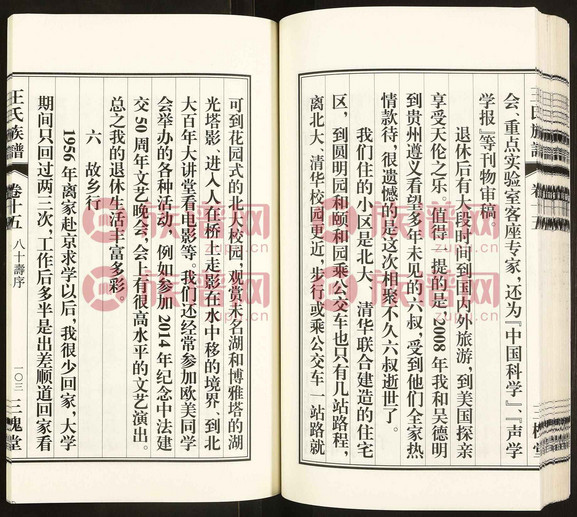 会、重点实验室客座专家，还为『中国科学』、『声学
学报』等刊物审稿。
退休后有大段时间到国内外旅游，到美国探亲
享受天伦之乐。值得一提的是，2008年我和吴德明
到贵州遵义看望多年未见的六叔，受到他们全家热
情款待，很遗憾的是这次相聚不久六叔逝世了。
我们住的小区是北大、清华联合建造的住宅
区，到圆明园和颐和园乘公交车也只有几站路程，
离北大、清华校园更近，步行或乘公交车一站路就
可到花园式的北大校园，观赏未名湖和博雅塔的湖
光塔影，进入人在桥上走影在水中移的境界、到北
大百年大讲堂看电影等。我们还经常参加欧美同学
会举办的各种活动，例如参加2014年纪念中法建
交50周年文艺晚会，会上有很高水平的文艺演出。
总之我的退休生活丰富多彩。
六 故乡行
1956年离家赴京求学以后，我很少回家，大学
期间只回过两三次，工作后多半是出差顺道回家看
王氏族譜 卷十五 八十壽序 一〇三 三槐堂
族谱网
zupu.cn
族谱网
zupu.cn